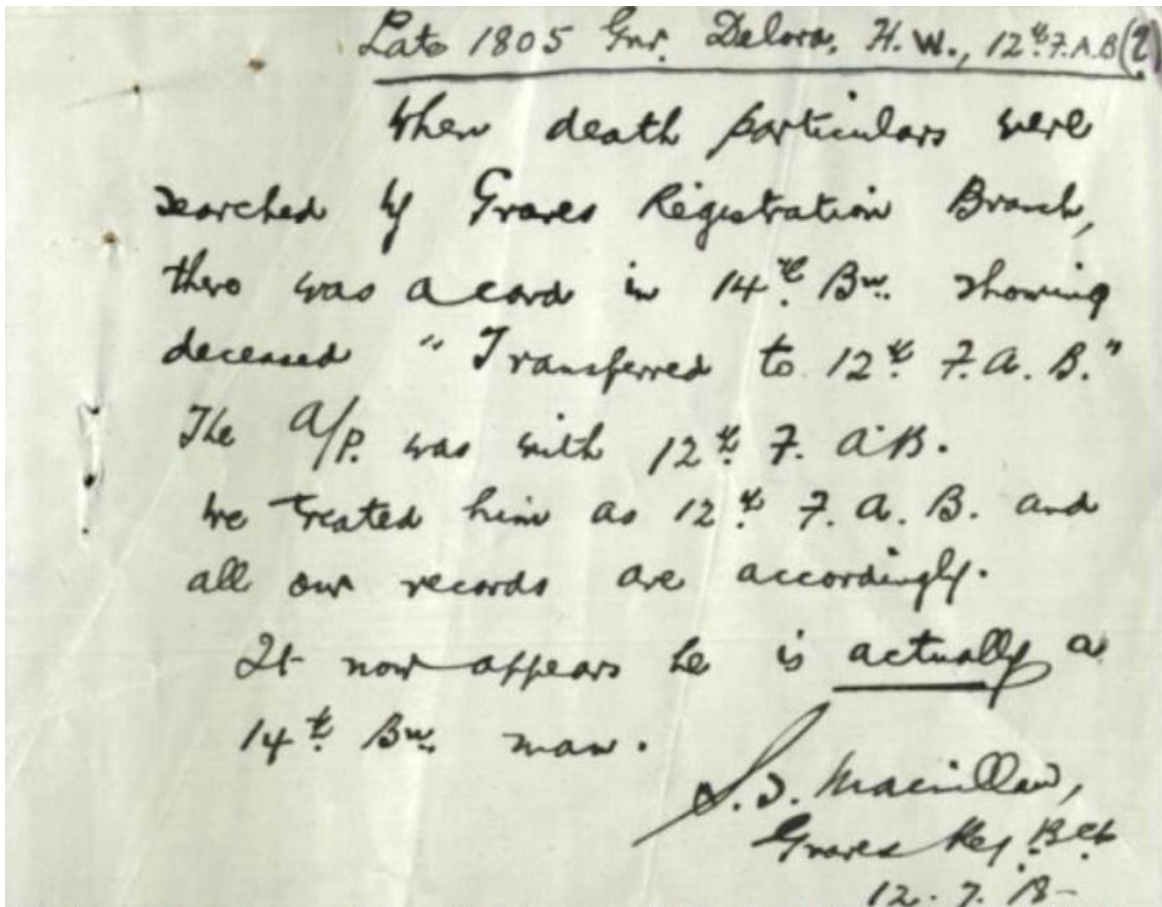 Late 1805 Gnr. Delora. H.W., 12th F.A.B (?)
When death particulars were
searched by Graves Registration Branch,
there was a card in 14th Bn. showing
deceased "Transferred to 12th F.A.B."
The A/P. was with 12th F.A.B.
We treated him as 12th F.A.B. and
all our records are accordingly.
It now appears he is actually a
14th Bn. man.
Macmillan,
Graves Reg. Bch
12.7.18